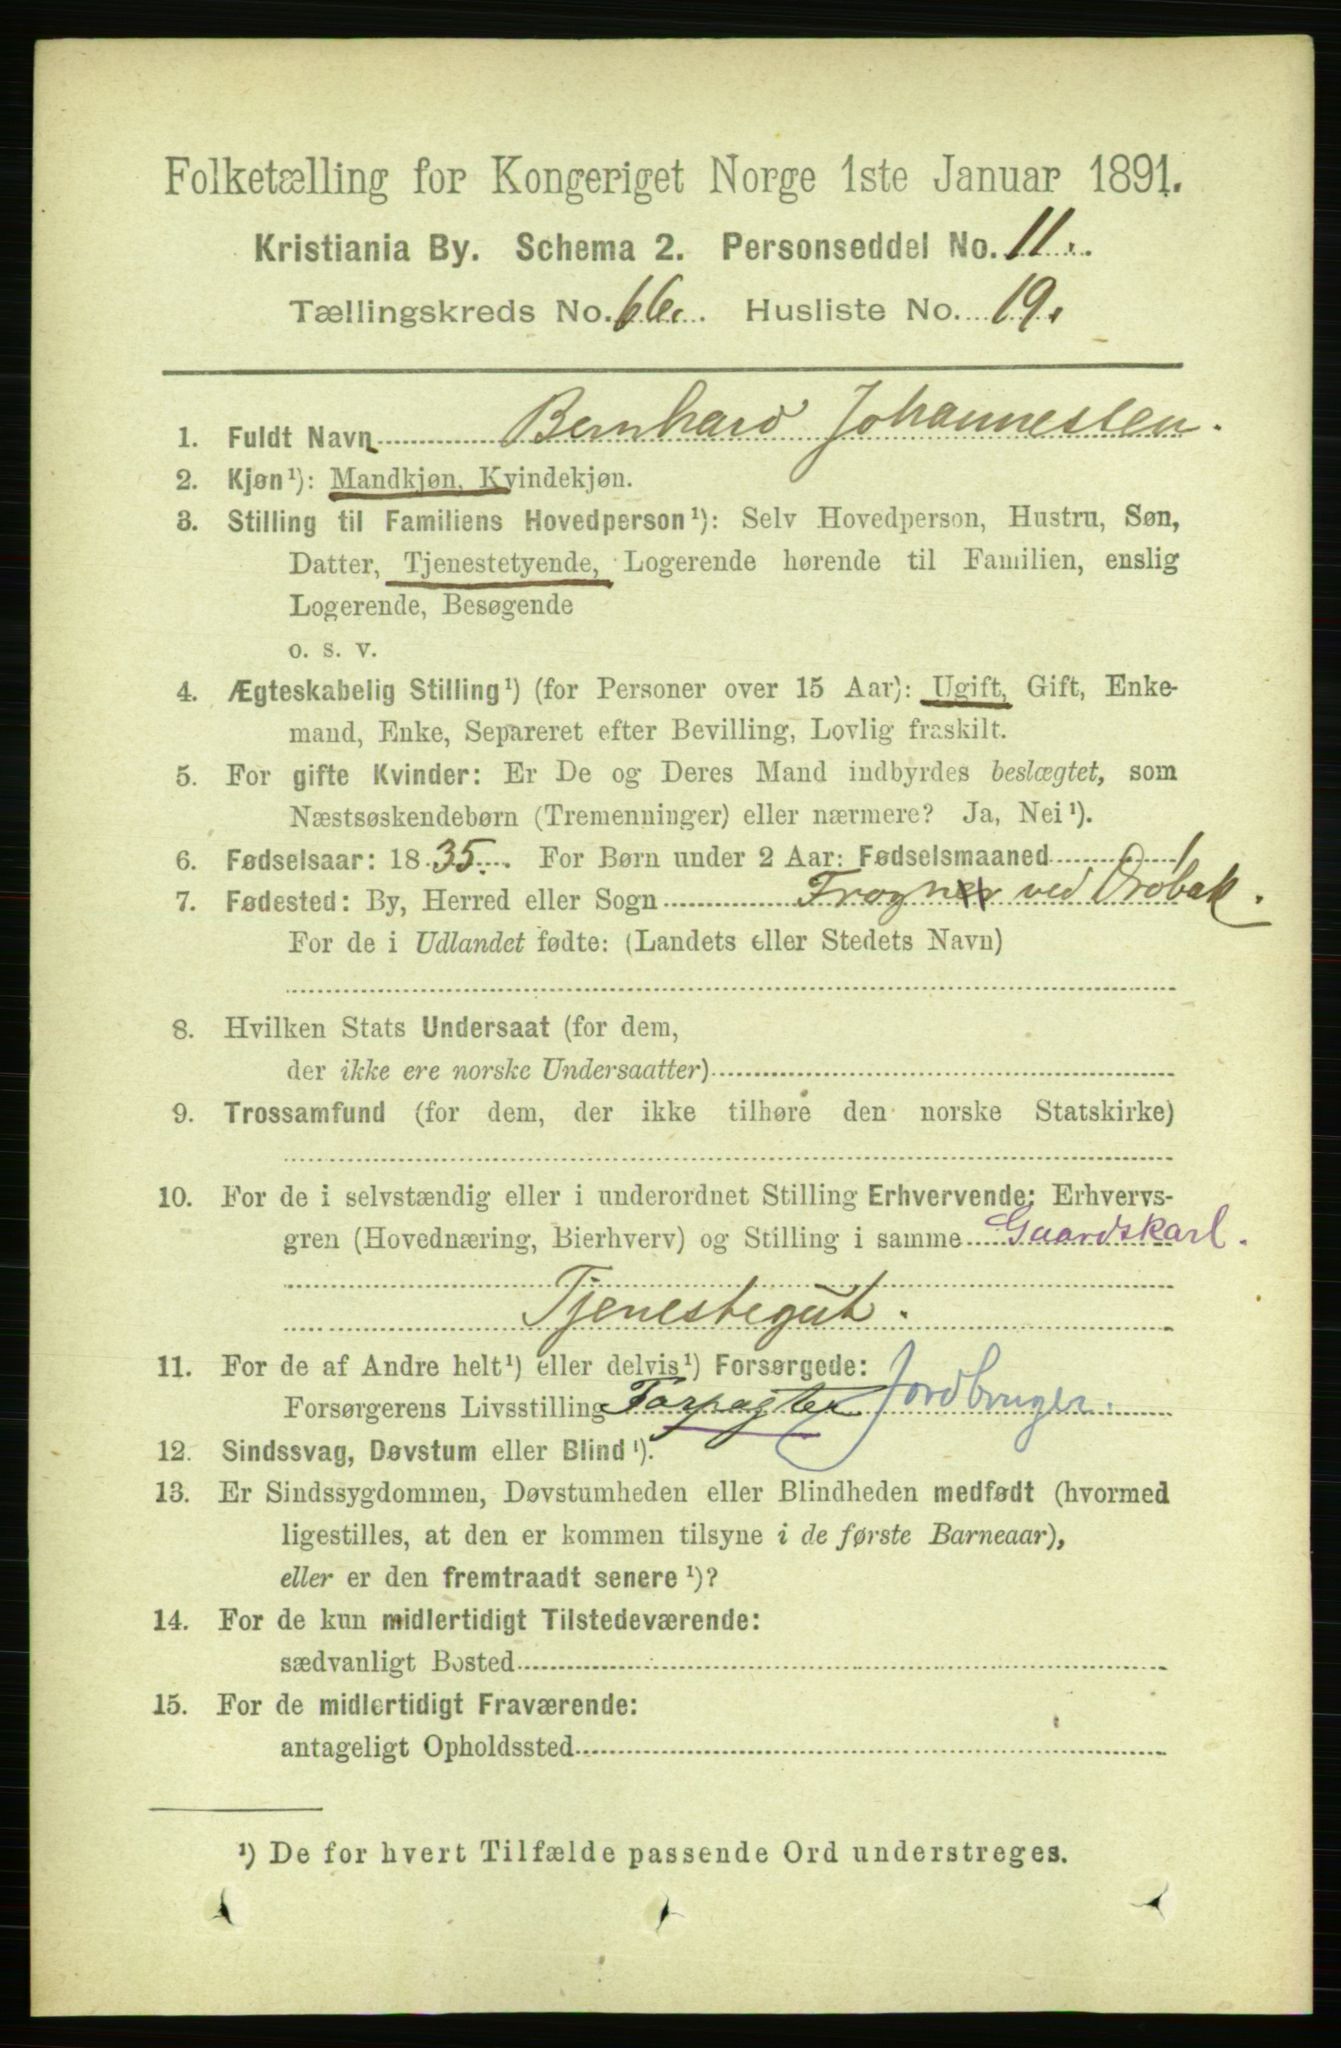 Folketælling for Kongeriget Norge 1ste Januar 1891.
Kristiania By. Schema 2. Personseddel No. 11.
Tællingskreds No. 66. Husliste No. 19.
1. Fuldt Navn Bernhard Johannessen.
2. Kjøn¹): Mandkjøn, Kvindekjøn.
3. Stilling til Familiens Hovedperson¹): Selv Hovedperson, Hustru, Søn,
Datter, Tjenestetyende, Logerende hørende til Familien, enslig
Logerende, Besøgende
o. s. v.
4. Ægteskabelig Stilling¹) (for Personer over 15 Aar): Ugift, Gift, Enke-
mand, Enke, Separeret efter Bevilling, Lovlig fraskilt.
5. For gifte Kvinder: Er De og Deres Mand indbyrdes beslægtet, som
Næstsøskendebørn (Tremenninger) eller nærmere? Ja, Nei¹).
6. Fødselsaar: 1835. For Børn under 2 Aar: Fødselsmaaned
7. Fødested: By, Herred eller Sogn Frogner ved Drøbak.
For de i Udlandet fødte: (Landets eller Stedets Navn)
8. Hvilken Stats Undersaat (for dem,
der ikke ere norske Undersaatter)
9. Trossamfund (for dem, der ikke tilhøre den norske Statskirke)
10. For de i selvstændig eller i underordnet Stilling Erhvervende: Erhvervs-
gren (Hovednæring, Bierhverv) og Stilling i samme Gaardskarl.
Tjenestegut.
11. For de af Andre helt¹) eller delvis¹) Forsørgede:
Forsørgerens Livsstilling Forpagter Jordbruger.
12. Sindssvag, Døvstum eller Blind¹).
13. Er Sindssygdommen, Døvstumheden eller Blindheden medfødt (hvormed
ligestilles, at den er kommen tilsyne i de første Barneaar),
eller er den fremtraadt senere¹)?
14. For de kun midlertidigt Tilstedeværende:
sædvanligt Bosted
15. For de midlertidigt Fraværende:
antageligt Opholdssted
¹) De for hvert Tilfælde passende Ord understreges.